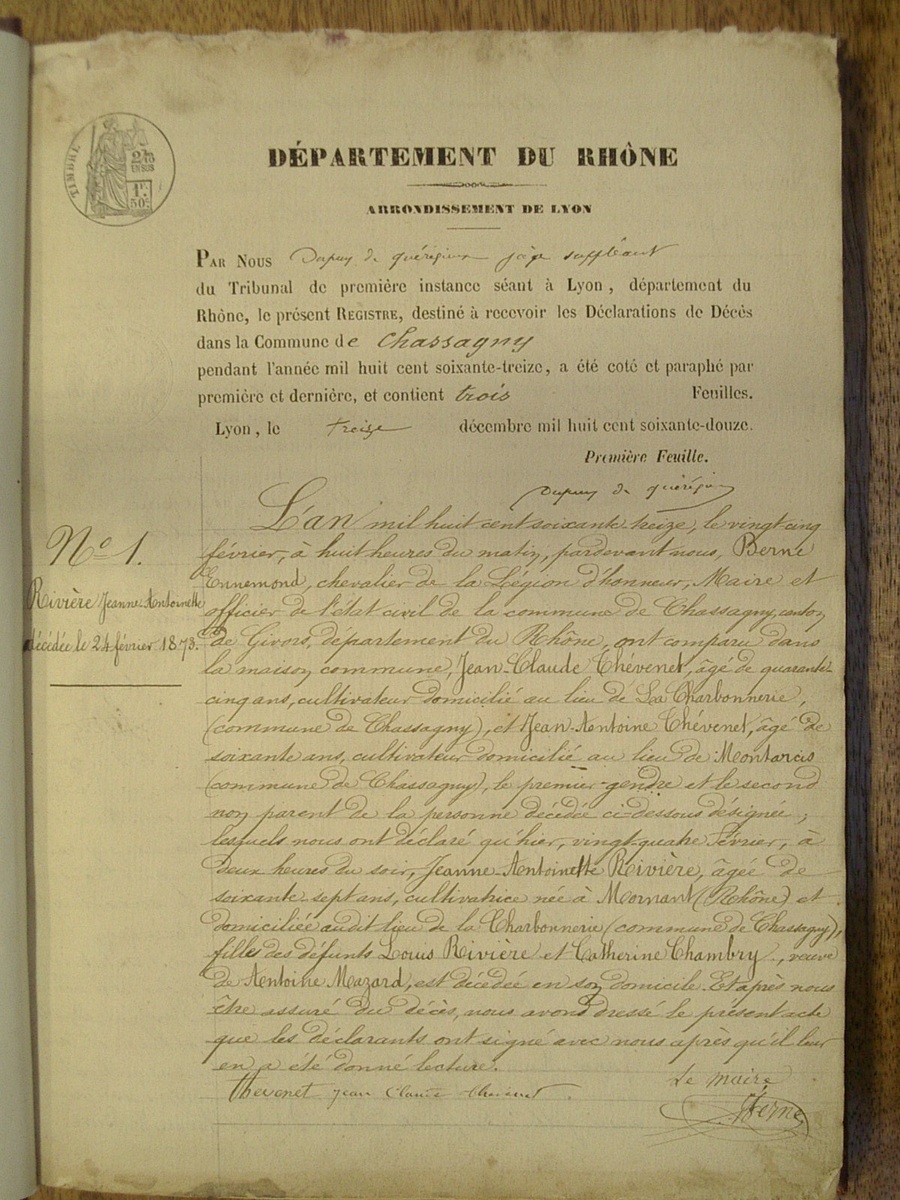 TIMBRE
1F.
50C.
DÉPARTEMENT DU RHÔNE
ARRONDISSEMENT DE LYON
PAR NOUS Dupuy de juge suppléant
du Tribunal de première instance séant à Lyon, département du
Rhône, le présent REGISTRE, destiné à recevoir les Déclarations de Décès
dans la Commune de Chassagny
pendant l'année mil huit cent soixante-treize, a été coté et paraphé par
première et dernière, et contient trois Feuilles.
Lyon, le treize décembre mil huit cent soixante-douze.
Première Feuille.
Dupuy de
N° 1.
Rivière Jeanne-Antoinette
décédée le 24 février 1873.
L'an mil huit cent soixante-treize, le vingt cinq
février, à huit heures du matin, pardevant nous, Berne
Ennemond, chevalier de la Légion d'honneur, Maire et
officier de l'état civil de la commune de Chassagny, canton
de Givors, département du Rhône, ont comparu dans
la maison commune, Jean-Claude Thévenet, âgé de quarante-
cinq ans, cultivateur domicilié au lieu de La Charbonnerie,
(commune de Chassagny), et Jean-Antoine Thévenet, âgé de
soixante ans, cultivateur domicilié au lieu de Montarcis
(commune de Chassagny), le premier gendre et le second
non parent de la personne décédée ci-dessous désignée,
lesquels nous ont déclaré qu'hier, vingt-quatre février, à
deux heures du soir, Jeanne-Antoinette Rivière, âgée de
soixante-sept ans, cultivatrice née à Mornant (Rhône) et
domiciliée audit lieu de la Charbonnerie (commune de Chassagny),
filles des défunts Louis Rivière et Catherine Chambry, veuve
de Antoine Mazard, est décédée en son domicile. Et après nous
être assuré du décès, nous avons dressé le présent acte
que les déclarants ont signé avec nous après qu'il leur
en a été donné lecture.
Thevenet Jean Claude Thevenet.
Le maire
Berne